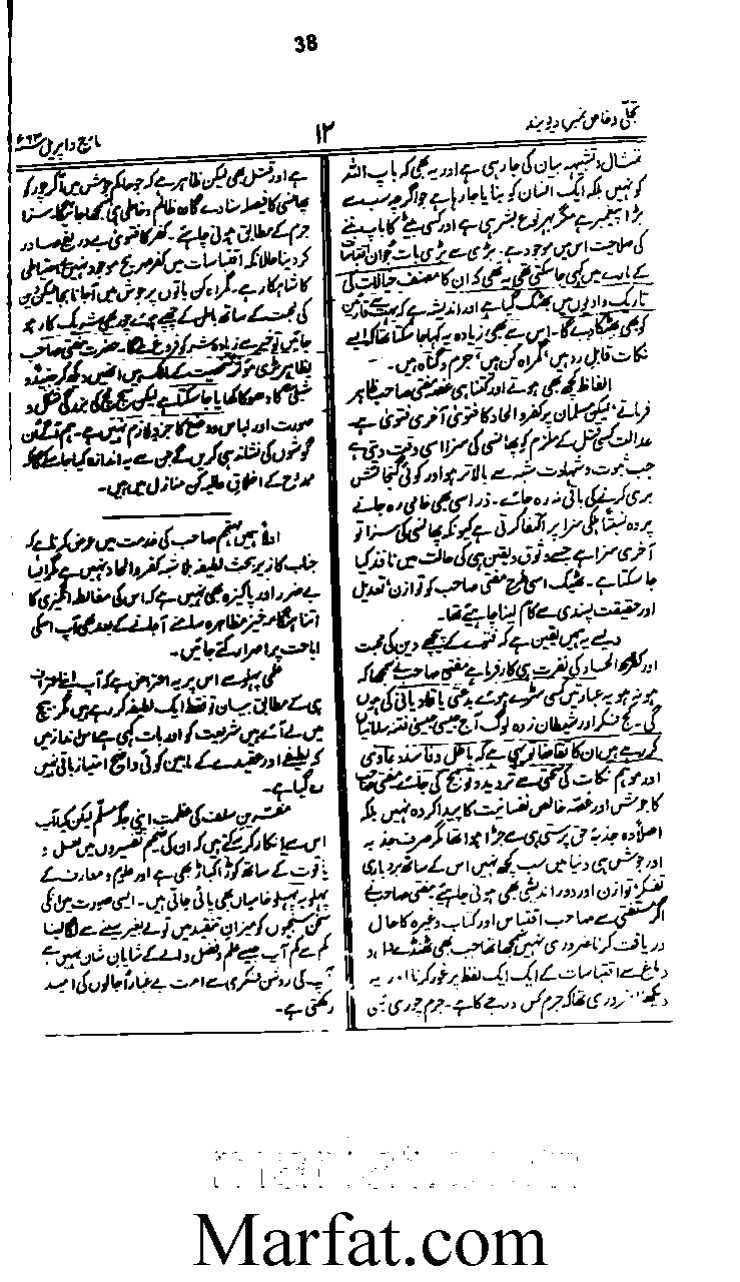 38
تجلی و خاص نمبر، دیوبند
۱۲
مارچ و اپریل ۶۶۳
تمثال و تشبیہہ بیان کی جا رہی ہے اور یہ بھی کہ باپ اللہ
کو نہیں بلکہ ایک انسان کو بنایا جا رہا ہے جو اگرچہ سب سے
بڑا پیغمبر ہے مگر بہر نوع بشر ہی ہے اور کسی بیٹے کا باپ بننے
کی صلاحیت اس میں موجود ہے۔ بڑی سے بڑی بات جو ان اقتباسات
کے بارے میں کہی جا سکتی تھی یہ تھی کہ ان کا مصنف خیالات کی
تاریک وادیوں میں بھٹک گیا ہے اور اندیشہ ہے کہ بہت سے قارئین
کو بھی بھٹکا دے گا۔ اس سے بھی زیادہ یہ کہا جا سکتا تھا کہ ایسے
نکات قابل رد ہیں، گمراہ کن ہیں، جرم و گناہ ہیں۔
الفاظ کچھ بھی ہوتے اور کتنا ہی غصہ مفتی صاحب ظاہر
فرماتے، لیکن مسلمان پر کفر و الحاد کا فتویٰ آخری فتویٰ ہے۔
عدالت کسی قتل کے ملزم کو پھانسی کی سزا اسی وقت دیتی ہے
جب ثبوت و شہادت شبہ سے بالاتر ہو اور کوئی گنجائش
بری کرنے کی باقی نہ رہ جائے۔ ذرا سی بھی خامی رہ جانے
پر وہ نسبتاً ہلکی سزا پر اکتفا کرتی ہے کیونکہ پھانسی کی سزا تو
آخری سزا ہے جسے وثوق و یقین ہی کی حالت میں نافذ کیا
جا سکتا ہے۔ ٹھیک اسی طرح مفتی صاحب کو توازن، تعدیل
اور حقیقت پسندی سے کام لینا چاہیئے تھا۔
ویسے یہ ہمیں یقین ہے کہ فتوے کے پیچھے دین کی محبت
اور کفر و الحاد کی نفرت ہی کارفرما ہے مفتی صاحب نے سمجھا کہ
ہو نہ ہو یہ عبارتیں کسی سڑے ہوئے بدعتی یا قادیانی کی ہوں
گی۔ کج فکر اور شیطان زدہ لوگ آج جیسی جیسی فتنہ سامانیاں
کر رہے ہیں ان کا تقاضا تو یہی ہے کہ باطل و فاسد دعاوی
اور موہم نکات کی سختی سے تردید و توبیخ کی جائے مفتی صاحب
کا جوش اور غصہ خالص نفسانیت کا پیدا کردہ نہیں بلکہ
اصلاً وہ جذبۂ حق پرستی ہی سے جڑا ہوا تھا مگر صرف جذبہ
اور جوش ہی دنیا میں سب کچھ نہیں اس کے ساتھ بردباری
تفکر، توازن اور دور اندیشی بھی ہونی چاہئے مفتی صاحب نے
اگر مستفتی سے صاحب اقتباس اور کتاب وغیرہ کا حال
دریافت کرنا ضروری نہیں سمجھا تھا تب بھی ٹھنڈے دل و
دماغ سے اقتباسات کے ایک ایک لفظ پر غور کرنا اور یہ
دیکھنا ضروری تھا کہ جرم کس درجے کا ہے۔ جرم چوری بھی
ہے اور قتل بھی لیکن ظاہر ہے کہ جو حاکم جوش میں آکر چور کو
پھانسی کا فیصلہ سنا دے گا وہ ظالم و خاطی ہی سمجھا جائیگا، سزا
جرم کے مطابق ہونی چاہیے۔ کفر کا فتویٰ بے دریغ صادر
کر دینا حالانکہ اقتباسات میں کفر صریح موجود نہیں بے احتیاطی
کا شاہکار ہے۔ گمراہ کن باتوں پر جوش میں آ جانا بجا لیکن دین
کی محبت کے ساتھ باطل کے چھپے ہوئے چور بھی شریک کار ہو
جائیں تو خیر سے زیادہ شر کو فروغ ملے گا۔ حضرت مفتی صاحب
بظاہر بڑی موثر شخصیت کے مالک ہیں انھیں دیکھ کر جنیدؒ و
شبلیؒ کا دھوکا کھایا جا سکتا ہے لیکن سچ مچ کی بزرگی شکل و
صورت اور لباس و وضع کا جزو لازم نہیں ہے۔ ہم آگے ان
گوشوں کی نشاندہی کریں گے جن سے یہ اندازہ کیا جا سکے گا کہ
ممدوح کے اخلاق عالیہ کن منازل میں ہیں۔
اولاً ہمیں مہتمم صاحب کی خدمت میں عرض کرنا ہے کہ
جناب کا زیر بحث لطیفہ بلا شبہ کفر و الحاد نہیں ہے مگر ایسا
بے ضرر اور پاکیزہ بھی نہیں ہے کہ اس کی مغالطہ انگیزی کا
اتنا ہنگامہ خیز مظاہرہ سامنے آ جانے کے بعد بھی آپ اسکی
اباحت پر اصرار کئے جائیں۔
علمی پہلو سے اس پر یہ اعتراض ہے کہ آپ اپنے اعتراف
ہی کے مطابق بیان تو فقط ایک لطیفہ کر رہے ہیں مگر بیچ
میں لے آئے ہیں شریعت کو اور بات کہی ہے اس انداز میں
کہ لطیفے اور عقیدے کے مابین کوئی واضح امتیاز باقی نہیں
رہ گیا ہے۔
مفسرین سلف کی عظمت اپنی جگہ مسلّم لیکن کیا آپ
اس سے انکار کر سکتے ہیں کہ ان کی ضخیم تفسیروں میں لعل و
یاقوت کے ساتھ کوڑا کباڑ بھی ہے اور علوم و معارف کے
پہلو بہ پہلو خامیاں بھی پائی جاتی ہیں۔ ایسی صورت میں ان کی
سخن سنجیوں کو میزان تنقید میں تولے بغیر سینے سے لگا لینا
کم سے کم آپ جیسے علم و فضل والے کے شایان شان نہیں ہے
آپ کی روشن فکری سے امت بے غبار اجالوں کی امید
رکھتی ہے۔
Marfat.com